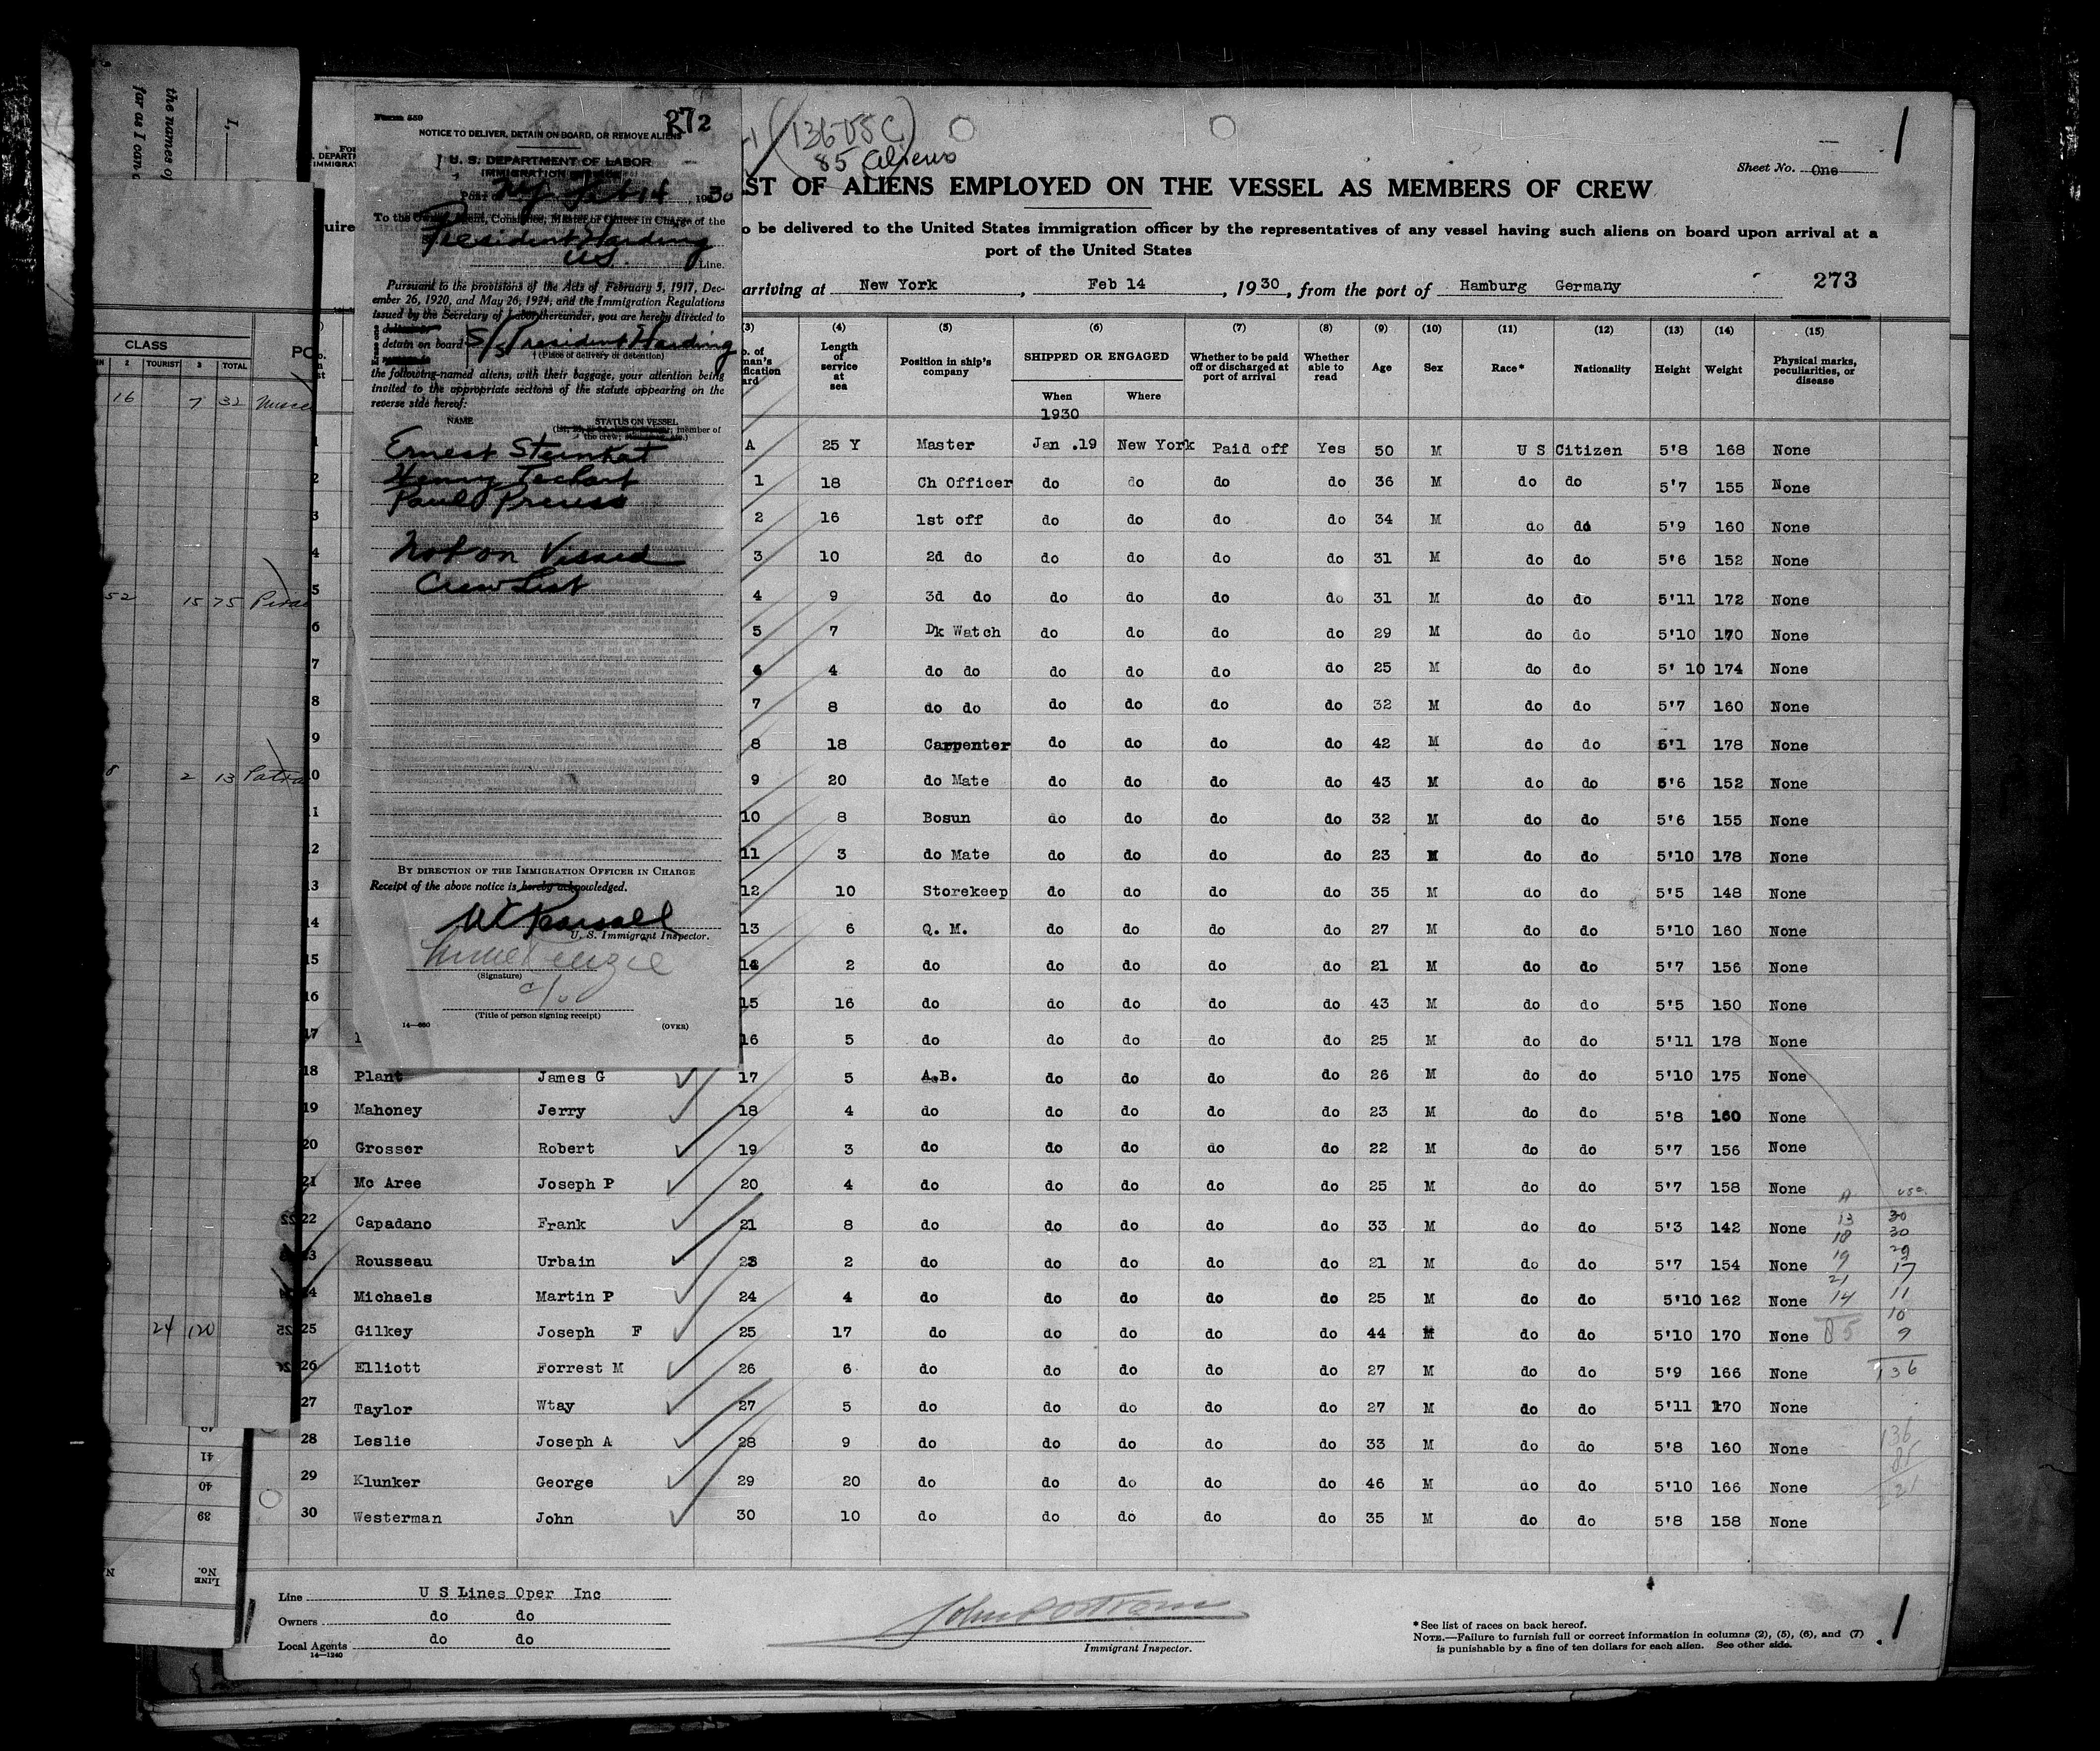 Form 559
272
NOTICE TO DELIVER, DETAIN ON BOARD, OR REMOVE ALIENS
U. S. DEPARTMENT OF LABOR
IMMIGRATION SERVICE
Port of N.Y. Feb 14, 1930
To the Owner, Agent, Consignee, Master or Officer in Charge of the
President Harding
U.S. Line.
Pursuant to the provisions of the Acts of February 5, 1917, Dec-
ember 26, 1920, and May 26, 1924, and the Immigration Regulations
issued by the Secretary of Labor thereunder, you are hereby directed to
detain on board S/S President Harding
(Place of delivery or detention)
the following-named aliens, with their baggage, your attention being
invited to the appropriate sections of the statute appearing on the
reverse side hereof:
NAME STATUS ON VESSEL
member of
the crew,
Ernest Steinhat
Henry Techart
Paul Preuss
Not on Visaed
Crew List
BY DIRECTION OF THE IMMIGRATION OFFICER IN CHARGE
Receipt of the above notice is hereby acknowledged.
U. S. Immigrant Inspector.
(Signature)
c/o
(Title of person signing receipt)
14—660 (OVER)
I,
the names of
far as I can
CLASS
2 TOURIST 3 TOTAL
16 7 32
52 15 75
8 2 13
24 120
41
40
39
LINE No.
(136 US C)
85 Aliens
Sheet No. One
ST OF ALIENS EMPLOYED ON THE VESSEL AS MEMBERS OF CREW
o be delivered to the United States immigration officer by the representatives of any vessel having such aliens on board upon arrival at a
port of the United States
arriving at New York, Feb 14, 1930, from the port of Hamburg Germany 273
(3) (4) (5) (6) (7) (8) (9) (10) (11) (12) (13) (14) (15)
Length of service at sea
Position in ship's company
SHIPPED OR ENGAGED
When
1930
Where
Whether to be paid off or discharged at port of arrival
Whether able to read
Age
Sex
Race*
Nationality
Height
Weight
Physical marks, peculiarities, or disease
1 A 25 Y Master Jan .19 New York Paid off Yes 50 M U S Citizen 5'8 168 None
2 1 18 Ch Officer do do do do 36 M do do 5'7 155 None
3 2 16 1st off do do do do 34 M do do 5'9 160 None
4 3 10 2d do do do do do 31 M do do 5'6 152 None
5 4 9 3d do do do do do 31 M do do 5'11 172 None
6 5 7 Dk Watch do do do do 29 M do do 5'10 170 None
7 6 4 do do do do do do 25 M do do 5' 10 174 None
8 7 8 do do do do do do 32 M do do 5'7 160 None
9 8 18 Carpenter do do do do 42 M do do 6'1 178 None
10 9 20 do Mate do do do do 43 M do do 5'6 152 None
11 10 8 Bosun do do do do 32 M do do 5'6 155 None
12 11 3 do Mate do do do do 23 M do do 5'10 178 None
13 12 10 Storekeep do do do do 35 M do do 5'5 148 None
14 13 6 Q. M. do do do do 27 M do do 5'10 160 None
15 14 2 do do do do do 21 M do do 5'7 156 None
16 15 16 do do do do do 43 M do do 5'5 150 None
17 16 5 do do do do do 25 M do do 5'11 178 None
18 Plant James G 17 5 A.B. do do do do 26 M do do 5'10 175 None
19 Mahoney Jerry 18 4 do do do do do 23 M do do 5'8 160 None
20 Grosser Robert 19 3 do do do do do 22 M do do 5'7 156 None
21 Mc Aree Joseph P 20 4 do do do do do 25 M do do 5'7 158 None
22 Capadano Frank 21 8 do do do do do 33 M do do 5'3 142 None
23 Rousseau Urbain 23 2 do do do do do 21 M do do 5'7 154 None
24 Michaels Martin P 24 4 do do do do do 25 M do do 5'10 162 None
25 Gilkey Joseph F 25 17 do do do do do 44 M do do 5'10 170 None
26 Elliott Forrest M 26 6 do do do do do 27 M do do 5'9 166 None
27 Taylor Wtay 27 5 do do do do do 27 M do do 5'11 170 None
28 Leslie Joseph A 28 9 do do do do do 33 M do do 5'8 160 None
29 Klunker George 29 20 do do do do do 46 M do do 5'10 166 None
30 Westerman John 30 10 do do do do do 35 M do do 5'8 158 None
A
13
18
19
21
14
85
USC
30
30
29
17
11
10
9
136
136
85
221
Line U S Lines Oper Inc
Owners do do
Local Agents do do
14—1240
Immigrant Inspector.
*See list of races on back hereof.
NOTE.—Failure to furnish full or correct information in columns (2), (5), (6), and (7)
is punishable by a fine of ten dollars for each alien. See other side.